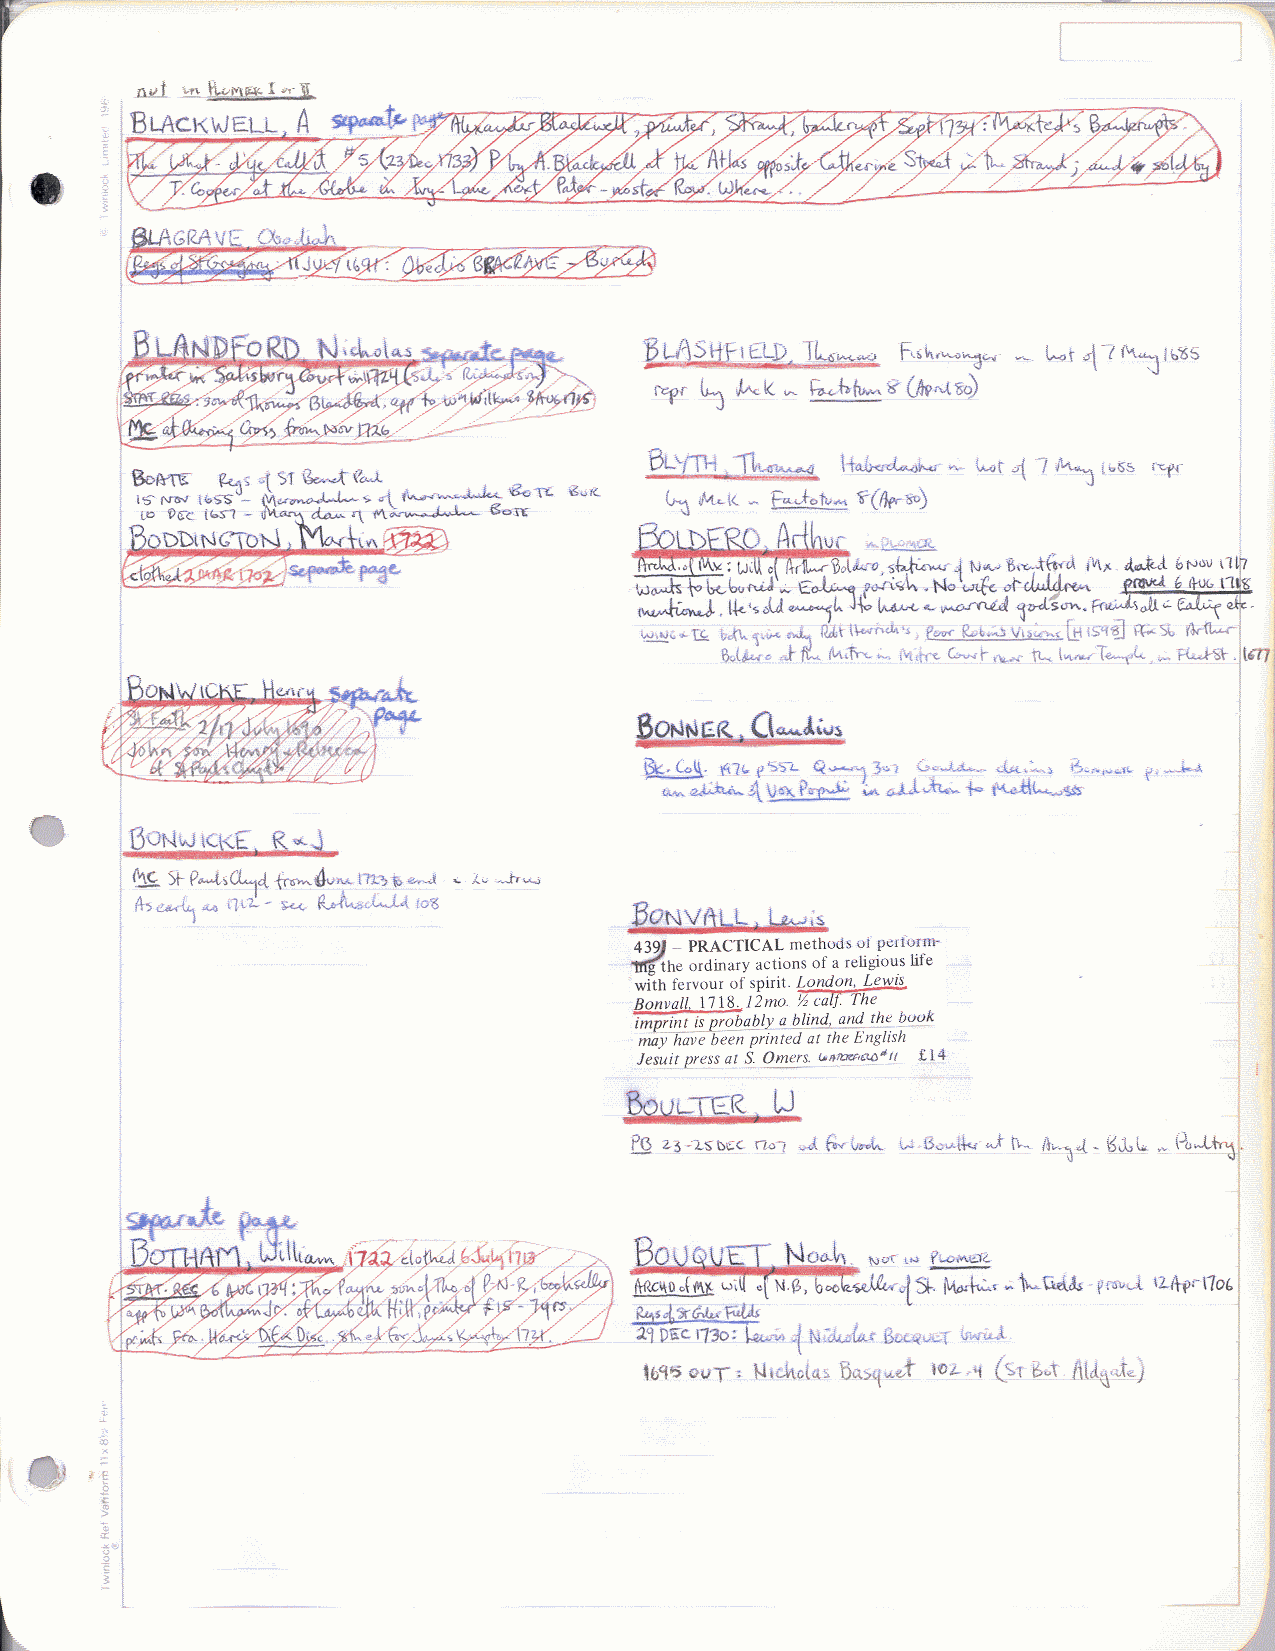 not in PLOMER I or II
BLACKWELL, A separate page Alexander Blackwell, printer, Strand, bankrupt Sept 1734: Maxted's Bankrupts.
The What-d'ye Call it #5 (23 Dec 1733) P by A. Blackwell at the Atlas opposite Catherine Street in the Strand; and sold by
T. Cooper at the Globe in Ivy-Lane next Pater-noster Row. Where...
BLAGRAVE, Obadiah
Regs of St Gregory: 11 JULY 1691: Obedis BRAGRAVE - Buried
BLANDFORD, Nicholas separate page
printer in Salisbury Court in 1724 (Sale's Richardson)
STAT REGS: son of Thomas Blandford, app to Wm Wilkins 8 AUG 1715
MC at Charing Cross from Nov 1726
BLASHFIELD, Thomas Fishmonger in list of 7 May 1685
repr by McK in Factotum 8 (April 80)
BLYTH, Thomas Haberdasher in list of 7 May 1685 repr
by McK in Factotum 8 (Apr 80)
BOATE Regs of ST Benet Paul
15 NOV 1655 - Marmaduke s of Marmaduke BOTE BUR
10 DEC 1657 - Mary dau of Marmaduke BOTE
BODDINGTON, Martin 1722
clothed 2 MAR 1702 separate page
BOLDERO, Arthur in PLOMER
Archd. of Mx: Will of Arthur Boldero, stationer of New Brentford Mx. dated 6 NOV 1717
Wants to be buried in Ealing parish. No wife or children proved 6 AUG 1718
mentioned. He's old enough to have a married godson. Friends all in Ealing etc.
WING & TC both give only Robt Herrick's, Poor Robin's Visions [H1598] Pf Sb Arthur
Boldero at the Mitre in Mitre Court near the Inner Temple, in Fleet St. 1677
BONWICKE, Henry separate page
St Faith 2/17 July 1690
John son Henry & Rebecca
of St Pauls Chyd
BONNER, Claudius
Bk. Coll. 1976 p552 Query 307 Goulden claims Bonner printed
an edition of Vox Populi in addition to Matthews's
BONWICKE, R & J
MC St Pauls Chyd from June 1723 to end
As early as 1712 - see Rothschild 108
BONVALL, Lewis
439 – PRACTICAL methods of perform-
ing the ordinary actions of a religious life
with fervour of spirit. London, Lewis
Bonvall, 1718. 12mo. ½ calf. The
imprint is probably a blind, and the book
may have been printed at the English
Jesuit press at S. Omers. WATERFIELD #11 £14
BOULTER, W
PB 23-25 DEC 1707 ad for book W. Boulter at the Angel - Bible in Poultry.
separate page
BOTHAM, William 1722 clothed 6 July 1713
STAT. REG 6 AUG 1734: Tho Payne son of Tho of P-N-R, bookseller
app to Wm Botham Jr. of Lambeth Hill, printer £15 - 7 yrs.
prints Fra. Hare's Dif & Disc. 8th ed for James Knapton 1721.
BOUQUET, Noah. NOT IN PLOMER
ARCHD of MX will of N.B, bookseller of St. Martins in the Fields - proved 12 Apr 1706
Regs of St Giles Fields
29 DEC 1730: Lewis of Nicholas BOCQUET buried.
1695 OUT: Nicholas Basquet 102.4 (ST Bot. Aldgate)
Twinlock Ref Variform 11 x 8½
Twinlock Limited 196